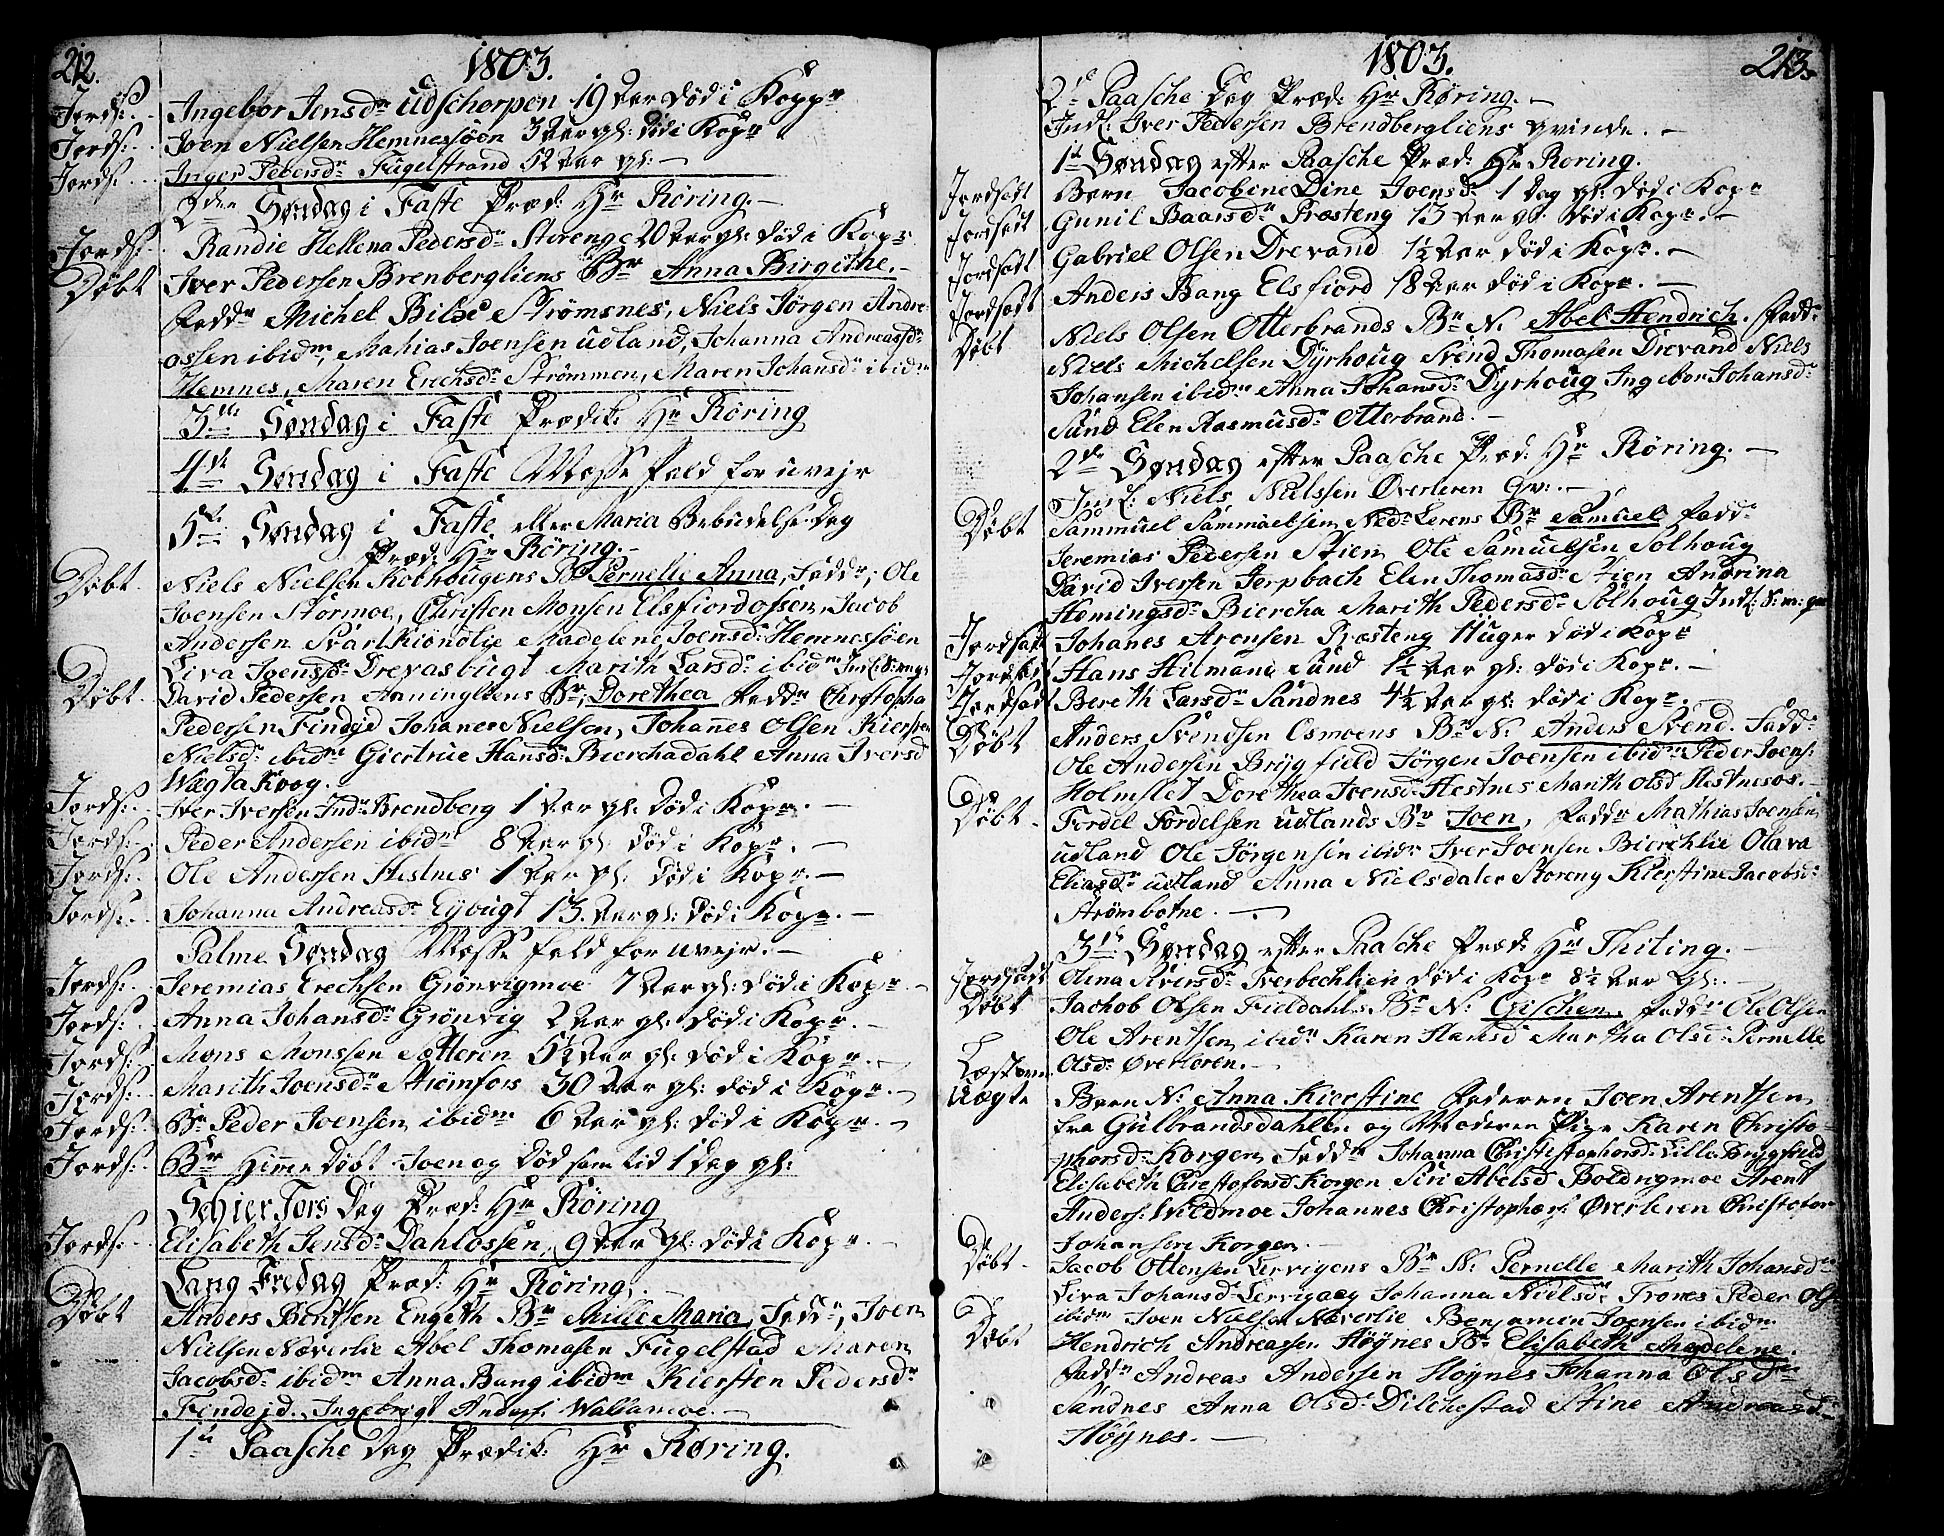 212.
1803.
Jords: Ingebor Jensdr. Udschorpen 19 Aar Død i Kopp.
Jords: Joen Nielsen Hemnessøen 3 Aar gl: Død i Kopr
Jords: Inger Pedersdr. Fugelstrand 52 Aar gl: —
2den Søndag i Faste Præd: Hr Røring. —
Jords: Randie Hellena Pedersdr. Storeng 20 Aar gl: Død i Kopr
Døbt Iver Pedersen Brenbergliens Br Anna Birgithe. —
Fadd: Michel Bilse Strømsnes, Niels Jörgen Andre-
ossen ibidm, Mahias Joensen udland, Johanna Andreasdr
Hemnes, Maren Erichsdr. Strømmen, Maren Johansdr. ibidm
3die Søndag i Faste Prædik: Hr Røring
4de Søndag i Faste Messe Fald for uvejr
5te Søndag i Faste eller Maria Bebudelse Dag
Præd: Hr Röring. —
Døbt. Niels Nielsen Kolhougens Br Pernelle Anna, Fadd:, Ole
Joensen Stormoe, Christen Monsen Elsfiordossen, Jacob
Andersen Svartkiöndlie Madelene Joensdr: Hemnessøen
Liva Joensdr: Drevasbugt Marith Larsdr: ibidm
Døbt. David Pedersen Aaningliens Br, Dorethea Fadd:
Pedersen Findejd Johannes Nielsen, Johannes Olsen Kiersten
Nielsdr: ibidm Giertrue Hansdr: Bierchadahl Anna Iversd
Wægtakrog.
Jords: Iver Iversen Inds: Brendberg 1 Aar gl: Død i Kopr. —
Jords: Peder Andersen ibidm 8 Aar gl: Død i Kopr. —
Jords: Ole Andersen Hestnes 1 Aar gl: Død i Kopr. —
Jords: Johanna Andreasdr: Eybugt 13. Aar gl: Død i Kopr. —
Palme Søndag Messe Fald for uvejr. —
Jords: Jeremias Erechsen Grönvigmoe 7 Aar gl: Død i Kopr. —
Jords: Anna Johansdr: Grönvig 2 Aar gl: Död i Kopr. —
Jords: Mons Monssen Sætteren 5½ Aar gl: død i Kopr. —
Jords: Marith Joensdr. Strömfors 30 Aar gl: død i Kopr. —
Jords: Br Peder Joensen ibidm 6 Aar gl: död i Kopr. —
Jords: Br Hiemedøbt Joen og Død sam tid 1 Dag gl:
Schier Tors Dag Præd: Hr Röring
Jords: Elisabeth Jensdr: Dahlossen, 9 Aar gl: død i Kopr. —
Lang Fredag Præd: Hr Röring.
Døbt Anders Bentsen Engeth Br Mille Maria, Fadd:, Joen
Nielsen Næverlie Abel Thomasen Fugelstad Maren
Jacobsdr: ibidm Anna Bang ibidm Kiersten Pedersdr
Findejd. Ingebrigt Anders: Wallamoe. —
1ste Paasche Dag Prædik: Hr Røring.
1803.
213.
2den Paasche Dag Præd: Hr Røring. —
Indl: Iver Pedersen Brendbergliens Qvinde. —
1ste Søndag efter Paasche Præd: Hr Roring.
Jordsadt Barn Jacobine Dine Joensdr: 1 Dag gl: Død i Kopr
Jordsadt Gunil Baarsdr Præsteng 13 Aar gl: Død i Kopr. —
Jordsadt Gabriel Olsen Drevand 1½ Aar död i Kopr. —
Jordsadt Anders Bang Elsfiord 18 Aar död i Kopr. —
Døbt Niels Olsen Otterbrands Br N: Abel Hendrich. Fadd:
Niels Michelsen Dÿrhoug Svend Thomasen Drevand Niels
Johansen ibidm Anna Johansdr Dyrhoug Ingebor Johansdr
Sund Elen Rasmusdr: Otterbrand. —
2den Søndag efter Paasche Præd: Hr Røring. —
Indl: Niels Nielssen Överleren Qv: —
Døbt Sammuel Sammuelsen Nedr: Lerens Br Samuel Fadd:
Jeremias Pedersen Stien Ole Samuelsen Solhoug
David Iversen Jerpbach Elen Thomasdr Stien Andrina
Hemingsdr: Biercha Marith Pedersdr: Solhoug
Jordsadt Johanes Arensen Præsteng 11 Uger död i Kopr
Jordsadt Hans Hilmand Sund 1½ Aar gl: död i Kopr. —
Jordsadt Bereth Larsdr. Sandnes 4½ Aar gl: död i Kopr. —
Døbt Anders Svendsen Osmoens Br N: Anders Svend. Fadd:
Ole Andersen Brygfield Jörgen Joensen ibidm Peder Joens:
Holmslet Dorethea Joensdr: Hestnes Marith Olsd Hestnesos. —
Døbt. Fordel Fordelsen udlands Br Joen, Fadd: Mathias Joensen
udland Ole Jörgensen ibidm Iver Joensen Bierchlie Olava
Eliasdr: udland Anna Nielsdaler Storeng Kierstine Jacobsdr:
Strömbotne. —
3die Søndag efter Paasche Præd: Hr Thiting. —
Jordsadt Olina Siversdr. Tverbechlien död i Kopr 8½ Aar gl: —
Døbt Jachob Olsen Fieldahls Br N: Gischen. Fadd: Ole Olsen
Ole Arentsen ibidm Karen Hansd Martha Olsdr: Pernelle
Olsdr: Överleren. —
Uægte Barn N: Anna Kierstine Faderen Joen Arentsen
fra Gulbrandsdahlen og Moderen Pige Karen Christo-
phorsdr. Korgen Fadd: Johanna Lille Brygfield
Elisabeth Christofersdr Korgen Siri Abelsd Boldngmoe Arent
Anders: Vildmoe Johannes Christophers: Överleren Christofer
Johansen Korgen
Døbt. Jacob Ottensen Lervigens Br N: Pernelle Marith Johansdr
Liva Johansdr Lervigaeg Johanna Nielsdr: Trones Peder Ols:
ibidm Joen Nielsen Næverlie Benjamin Joensen ibidm
Døbt Hendrich Andreassen Höynes Br Elisabeth Magdelene.
Fadd: Andreas Andersen Höynes Johanna Olsdr
Sandnes Anna Olsdr: Dilchestad Stine Andreasdr
Höynes. —